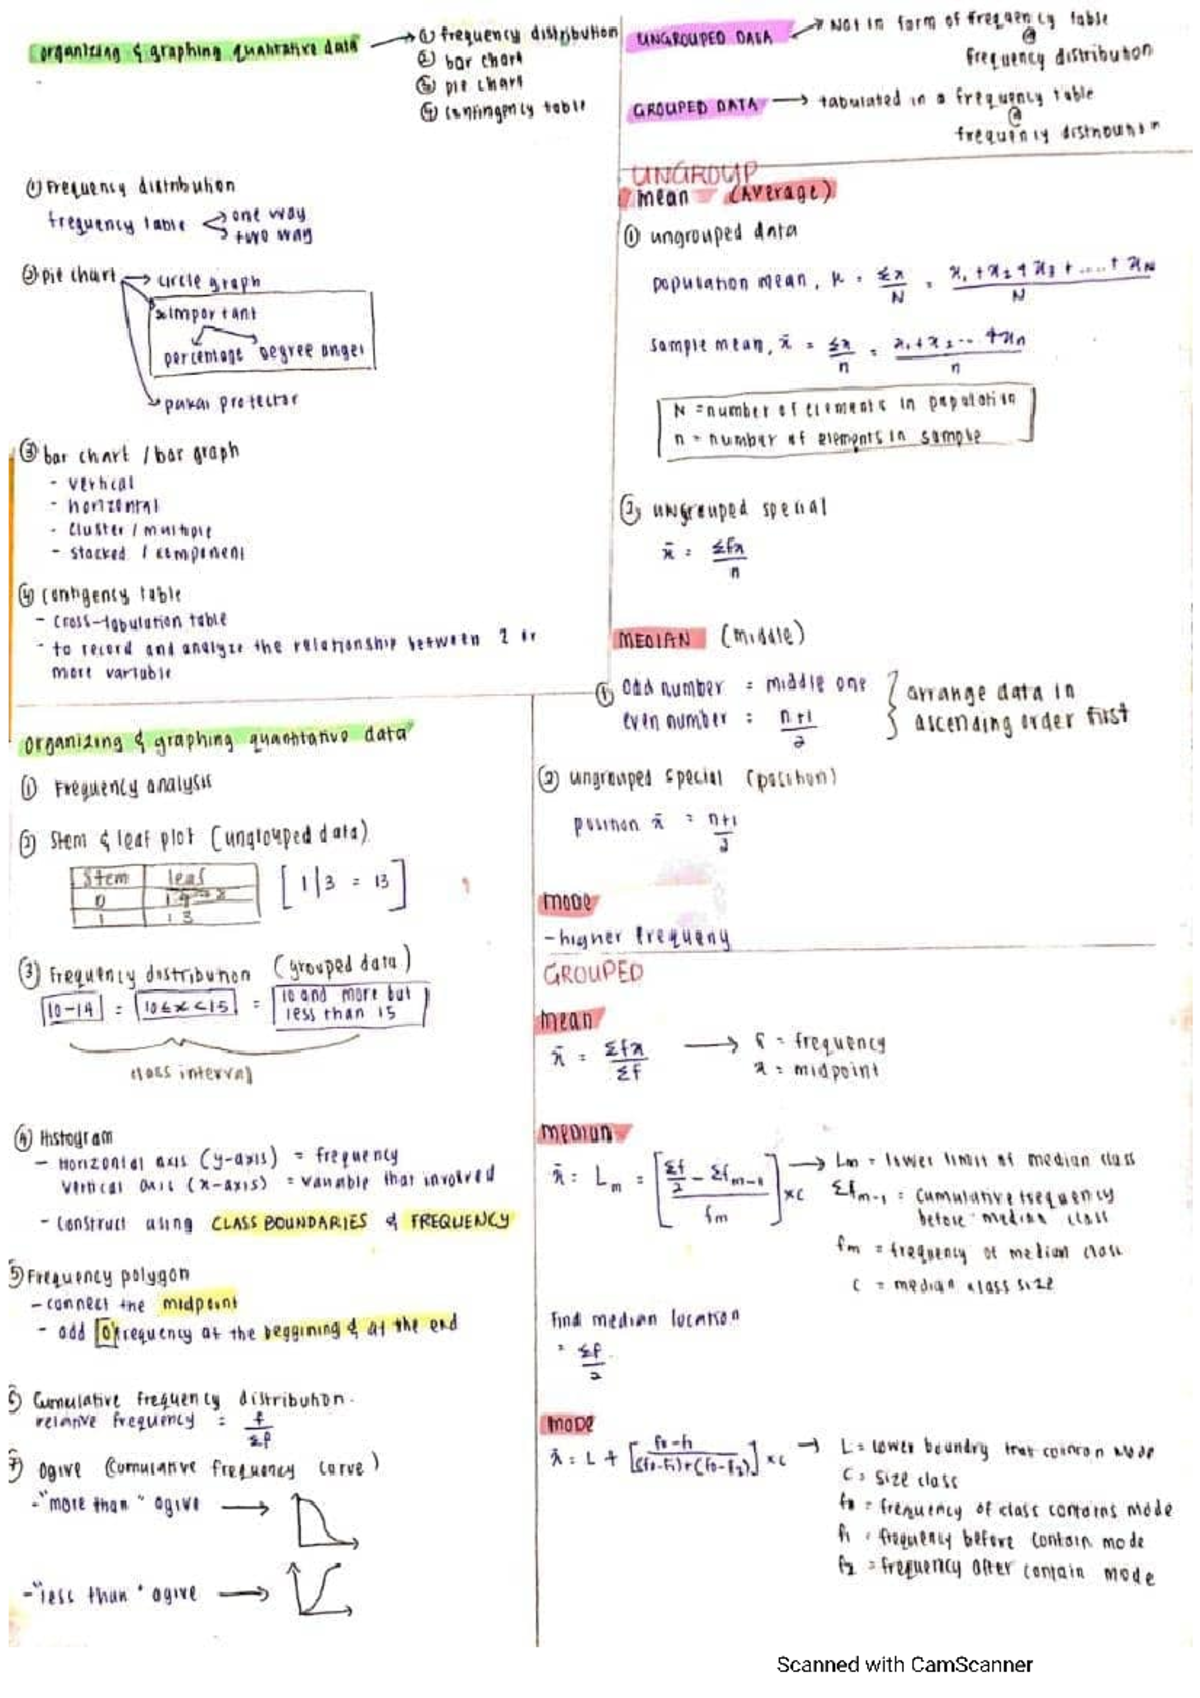 organizing & graphing qualitative data
① frequency distribution
② bar chart
③ pie chart
④ contingency table
① Frequency distribution
frequency table
one way
two way
② pie chart
circle graph
* important
percentage degree angel
pakai protector
③ bar chart / bar graph
- vertical
- horizontal
- cluster / multiple
- stacked / component
④ contigency table
- cross-tabulation table
- to record and analyze the relationship between 2 or
more variable
organizing & graphing quantitative data
① Frequency analysis
② Stem & leaf plot (ungrouped data)
Stem leaf
0
1 1 3
[1|3 = 13]
③ Frequency distribution (grouped data)
10-14 = 10≤x<15 = 10 and more but
less than 15
class interval
④ Histogram
- Horizontal axis (y-axis) = frequency
vertical axis (x-axis) = variable that involved
- construct using CLASS BOUNDARIES & FREQUENCY
⑤ Frequency polygon
- connect the midpoint
- add 0 frequency at the beggining & at the end
⑥ Cumulative frequency distribution.
relative frequency = f/Σf
⑦ Ogive (cumulative frequency curve)
- "more than" ogive
- "less than" ogive
UNGROUPED DATA → Not in form of frequency table
@
frequency distribution
GROUPED DATA → tabulated in a frequency table
@
frequency distribution
UNGROUP
mean (Average)
① ungrouped data
population mean, μ = Σx/N = x₁+x₂+x₃+....+xN/N
sample mean, x̄ = Σx/n = x₁+x₂...+xn/n
N = number of elements in population
n = number of elements in sample
② ungrouped special
x̄ = Σfx/n
MEDIAN (middle)
① odd number = middle one
even number = n+1/2
arrange data in
ascending order first
② ungrouped special (position)
position x̄ = n+1/2
mode
- higher frequeny
GROUPED
mean
x̄ = Σfx/Σf → f = frequency
x = midpoint
median
x̄ = Lm = [Σf/2 - Σfm-1 / fm] × c → Lm = lower limit of median class
Σfm-1 = cumulative frequency
before median class
fm = frequency of median class
c = median class size
Find median location
= Σf/2
MODE
x̄ = L + [f0-f1/(f0-f1)+(f0-f2)] × c → L = lower boundry that
C = size class
f0 = frequency of class contains mode
f1 = frequency before contain mode
f2 = frequency after contain mode
Scanned with CamScanner